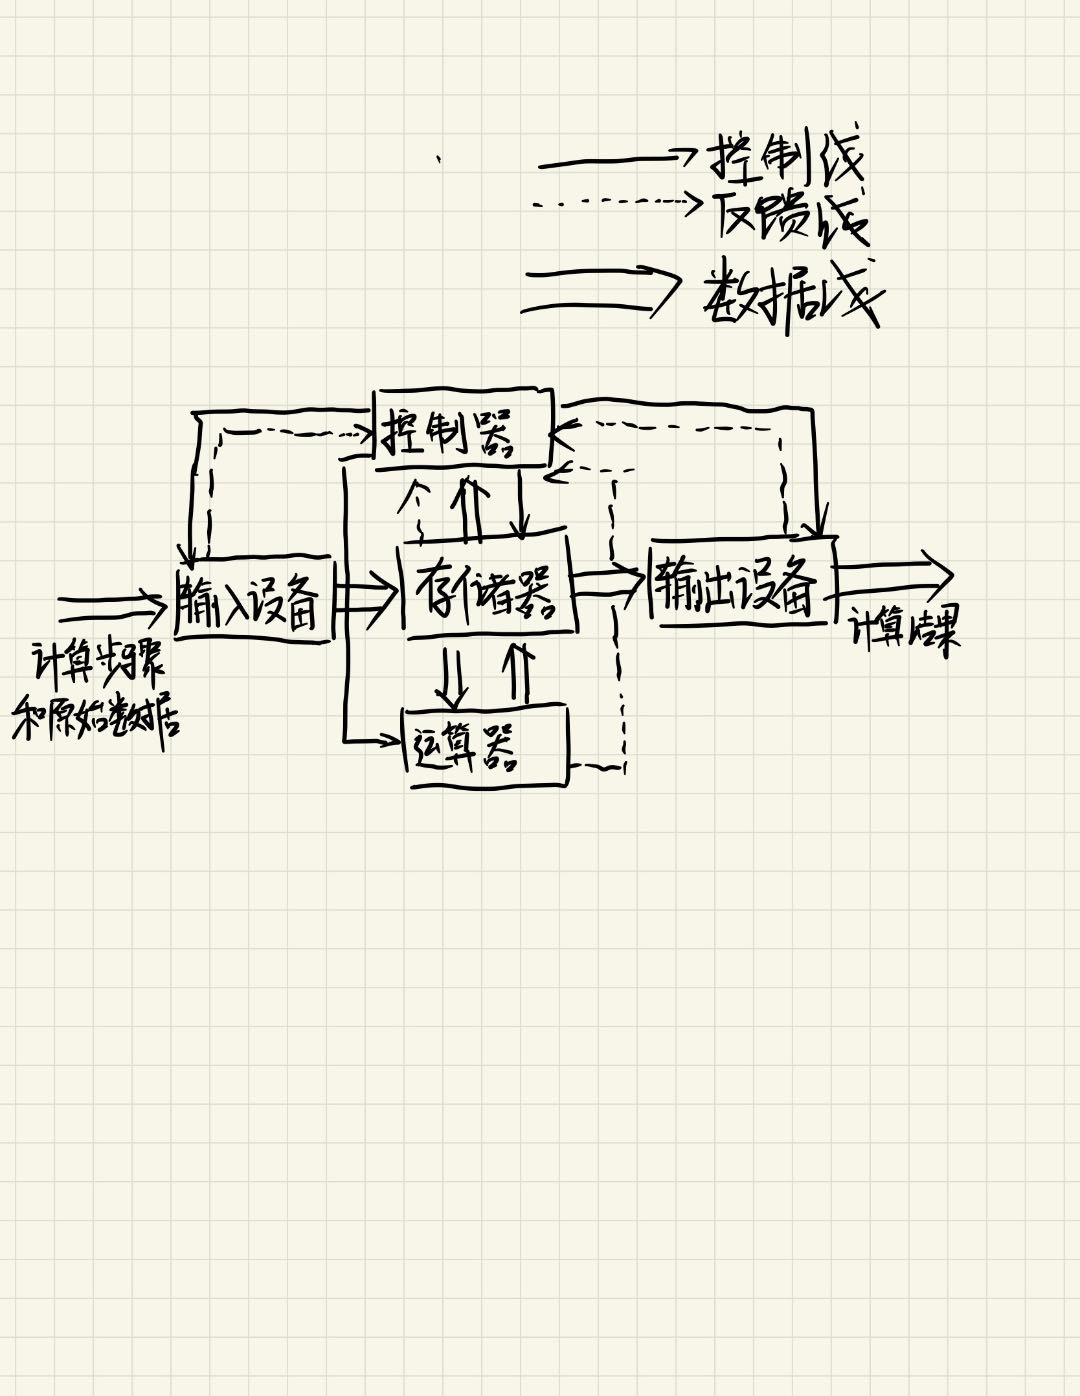 控制线
反馈线
数据线
控制器
输入设备
存储器
输出设备
计算步骤
和原始数据
计算结果
运算器